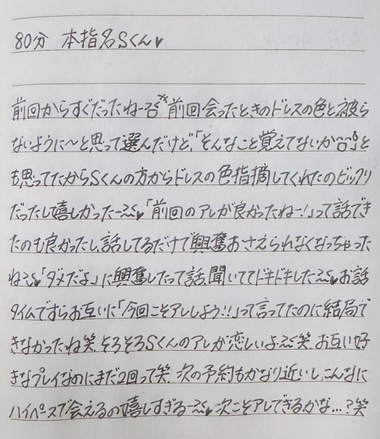 80分 本指名Sくん♥
前回からすぐだったね〜 前回会ったときのドレスの色と被ら
ないように〜と思って選んだけど「そんなこと覚えてないか」と
も思ってたからSくんの方からドレスの色指摘してくれたのビックリ
だったし嬉しかった〜♥「前回のアレが良かったね〜!」って話でき
たのも良かったし、話してるだけで興奮おさえられなくなっちゃった
ね♥「ダメだよ」に興奮したって話聞いててドキドキした〜♥お話
タイムですらお互いに「今回こそアレしよう!!」って言ってたのに結局で
きなかったね笑 そろそろSくんのアレが恋しいよ〜笑 お互い好
きなプレイなのにまだ2回って笑 次の予約もかなり近いし、こんなに
ハイペースで会えるの嬉しすぎる〜♥次こそアレできるかな...?笑